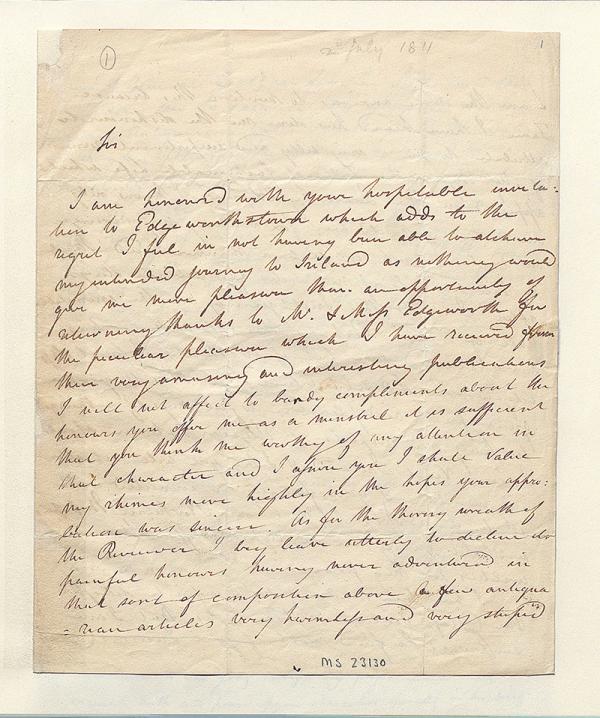 ①
2d July 1811
1
Sir
I am honourd with your hospitable invita-
tion to Edgeworthstown which adds to the
regret I feel in not having been able to atchieve
my intended journey to Ireland as nothing would
give me more pleasure than an opportunity of
returning thanks to Mr. & Miss Edgeworth for
the peculiar pleasure which I have received from
their very amusing and interesting publications
I will not affect to bandy compliments about the
honours you offer me as a minstrel it is sufficient
that you think me worthy of any attention in
that character and I assure you I shall value
my rhimes more highly in the hopes your appro:
bation was sincere. As for the thorny wreath of
the Reviewer I beg leave utterly to decline so
painful honours having never adventured in
that sort of composition above a few antiqua
=rian articles very harmless and very stupid
MS 23130